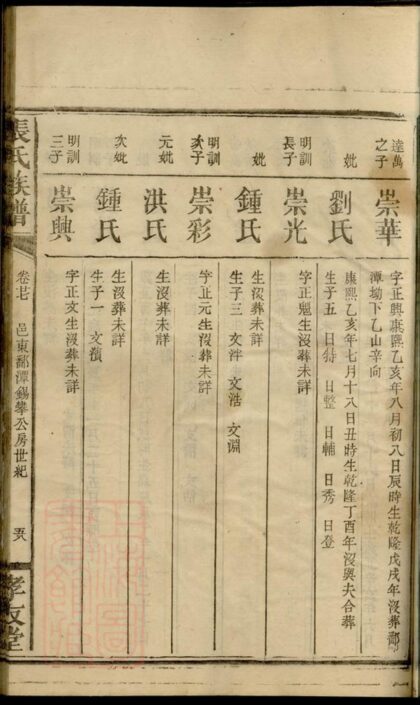 達萬之子
崇華
字正興康熙乙亥年八月初八日辰時生乾隆戊戌年沒葬鄱
潭坳下乙山辛向
妣
劉氏
康熙乙亥年七月十八日丑時生乾隆丁酉年沒與夫合葬
生子五 日特 日整 日輔 日秀 日登
明訓長子
崇光
字正魁生沒葬未詳
妣
鍾氏
生沒葬未詳
生子三 文泮 文浩 文淵
明訓次子
崇彩
字正元生沒葬未詳
元妣
洪氏
生沒葬未詳
次妣
鍾氏
生沒葬未詳
生子一 文
明訓三子
崇興
字正文生沒葬未詳
張氏族譜
卷七 邑東鄱潭錫攀公房世紀
孝友堂